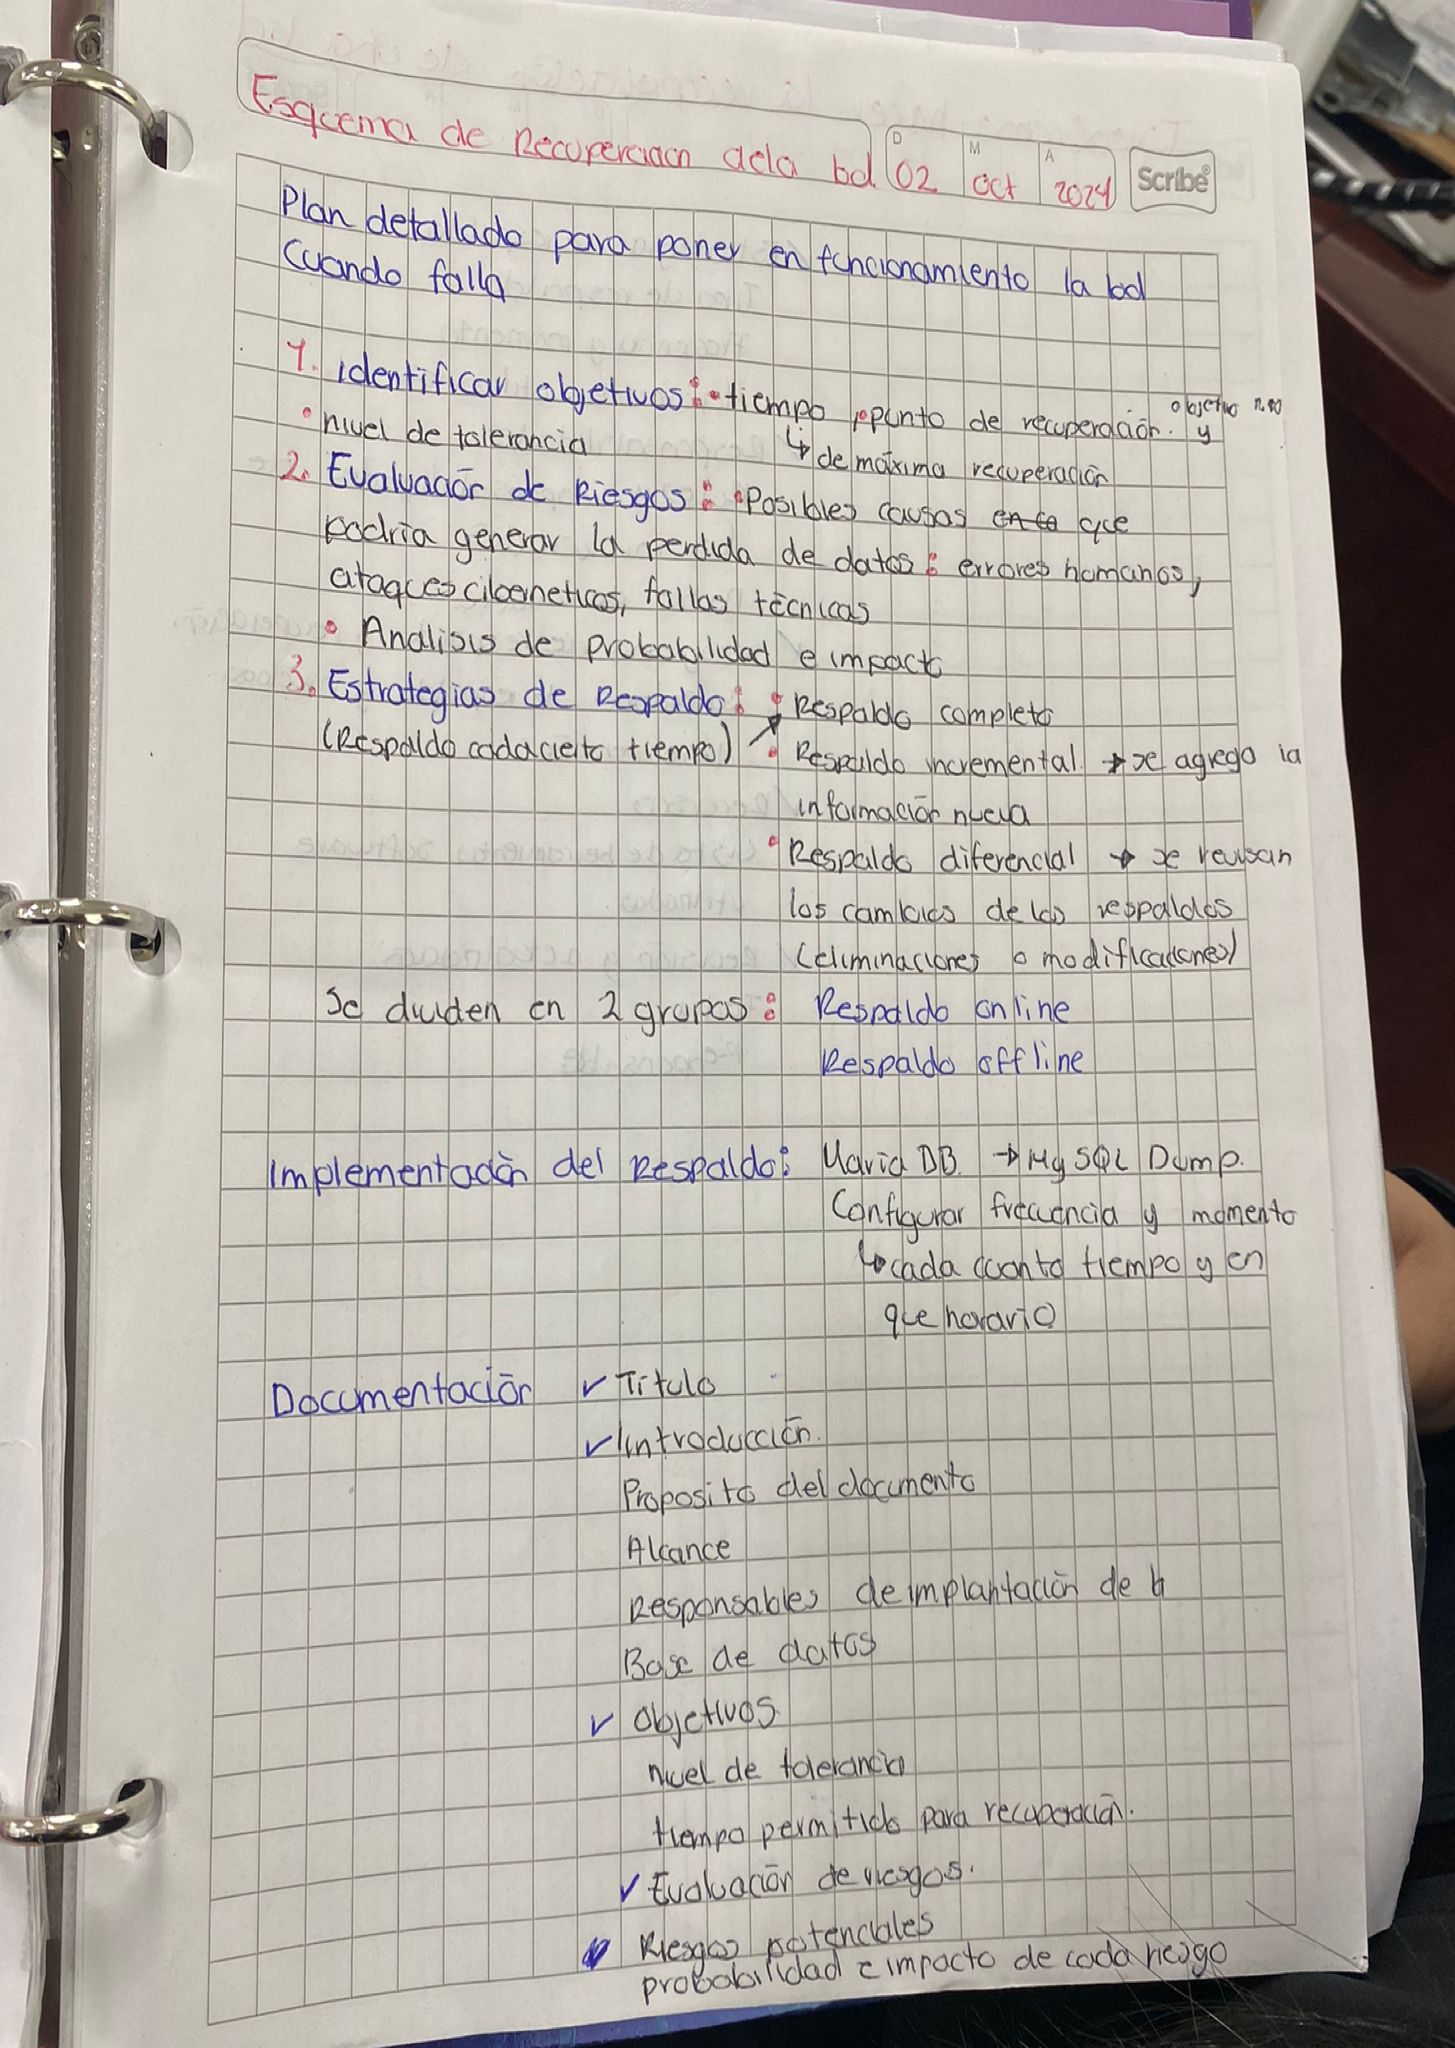 Esquema de Recuperación dela bd.
D M A
02 Oct 2024
Scribe
Plan detallado para poner en funcionamiento la bd
Cuando falla
1. identificar objetivos: • tiempo, • punto de recuperación. y
objetivo
• nivel de tolerancia
↳ de máxima recuperación
2. Evaluación de Riesgos: • Posibles causas que
podria generar la perdida de datos: errores humanos,
ataques ciberneticos, fallas técnicas
• Analisis de probabilidad e impacto
3. Estrategias de Respaldo: • Respaldo completo
(Respaldo cada cierto tiempo) • Respaldo incremental → se agrego la
información nueva
• Respaldo diferencial → se revisan
los cambios de los respaldos
(eliminaciones o modificaciones)
Se dividen en 2 grupos: Respaldo online
Respaldo offline
Implementación del Respaldo: Maria DB. → My SQL Dump.
Configurar frecuencia y momento
↳ cada cuanto tiempo y en
que horario
Documentación ✓ Titulo
✓ Introducción.
Proposito del documento
Alcance
Responsables de implantación de la
Base de datos
✓ Objetivos.
nivel de tolerancia
tiempo permitido para recuperación.
✓ Evaluación de riesgos.
Riesgos potenciales
probabilidad e impacto de cada riesgo